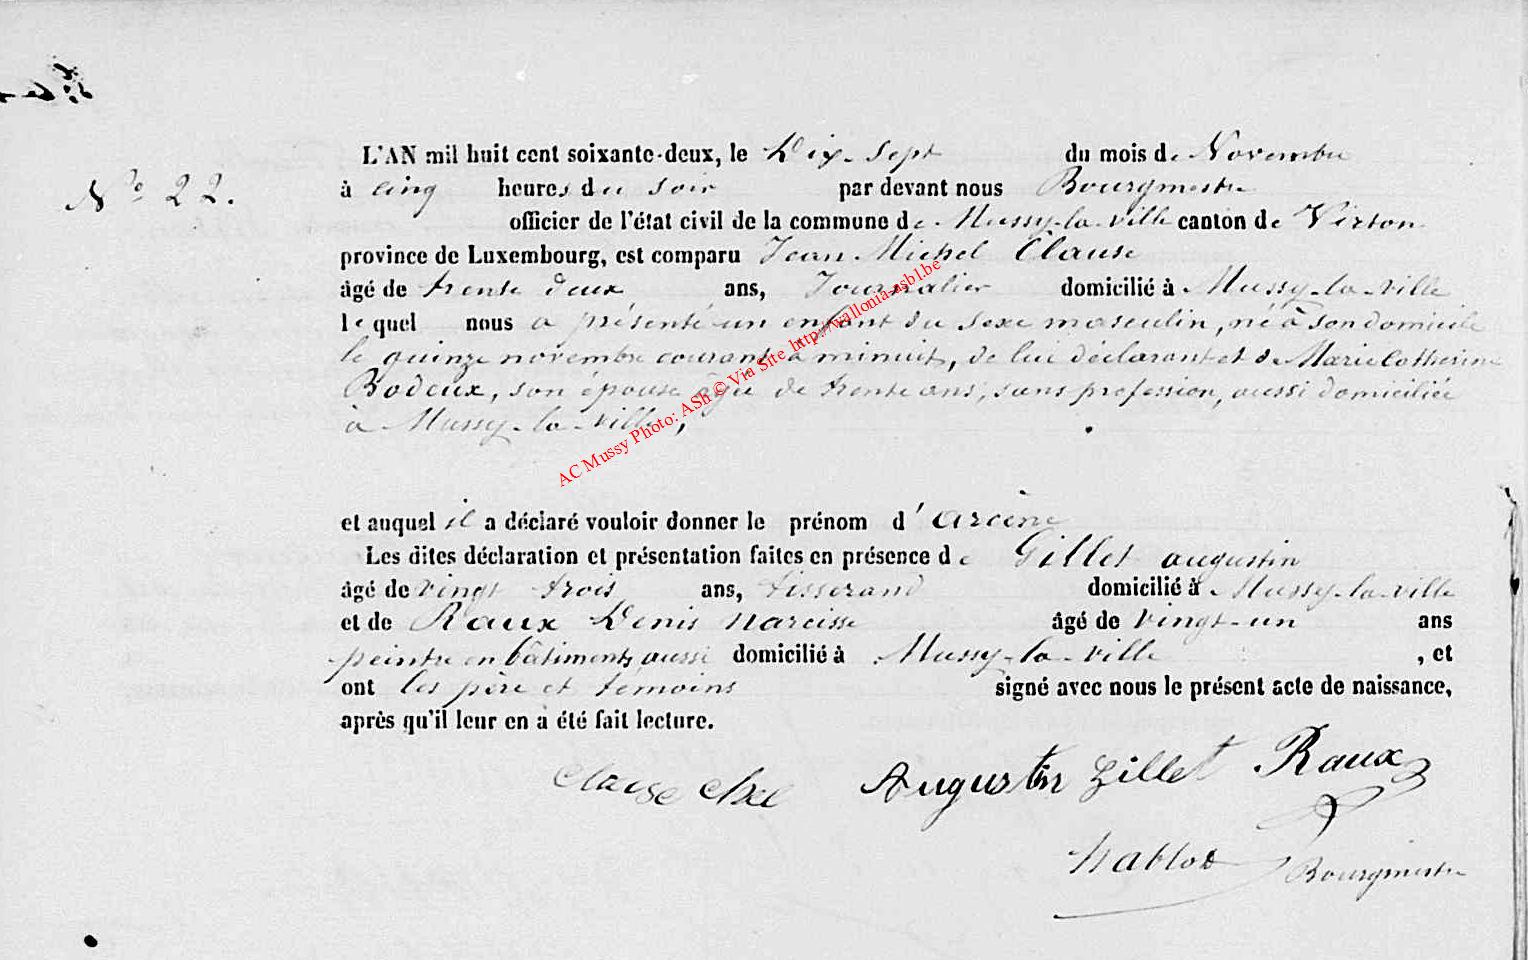 N° 22.
L'AN mil huit cent soixante-deux, le Dix-Sept du mois de Novembre
à cinq heures du soir par devant nous Bourgmestre
officier de l'état civil de la commune de Mussy-la-ville canton de Virton
province de Luxembourg, est comparu Jean Michel Clause
âgé de trente deux ans, Journalier domicilié à Mussy-la-ville
lequel nous a présenté un enfant du sexe masculin, né à son domicile
le quinze novembre courant à minuit, de lui déclarant et de Marie Catherine
Bodeux, son épouse âgée de trente ans, sans profession, aussi domiciliée
à Mussy-la-ville,
AC Mussy Photo: ASh © Via Site http://wallonia-asbl.be
et auquel il a déclaré vouloir donner le prénom d'arcène
Les dites déclaration et présentation faites en présence de Gillet augustin
âgé de vingt trois ans, tisserand domicilié à Mussy-la-ville
et de Raux Denis Narcisse âgé de vingt-un ans
peintre en bâtiments, aussi domicilié à Mussy-la-ville, et
ont les père et témoins signé avec nous le présent acte de naissance,
après qu'il leur en a été fait lecture.
Clause Augustin Gillet Raux
Bourgmestre